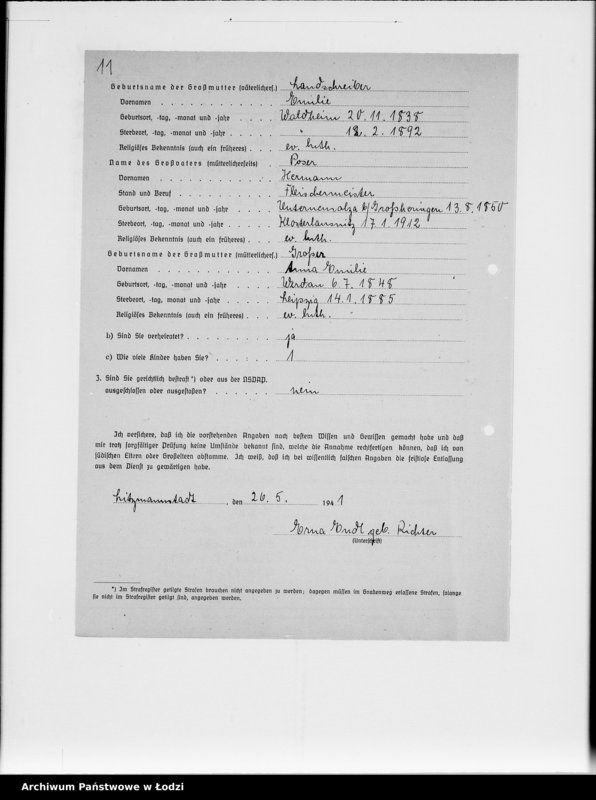 11
Geburtsname der Großmutter (väterlichers.) Landschreiber
Vornamen Emilie
Geburtsort, -tag, -monat und -jahr Waldheim 20.11.1838
Sterbeort, -tag, -monat und -jahr " 12.2.1892
Religiöses Bekenntnis (auch ein früheres) ev. luth.
Name des Großvaters (mütterlicherseits) Poser
Vornamen Hermann
Stand und Beruf Fleischermeister
Geburtsort, -tag, -monat und -jahr 13.8.1850
Sterbeort, -tag, -monat und -jahr Klosterlausnitz 17.1.1912
Religiöses Bekenntnis (auch ein früheres) ev. luth.
Geburtsname der Großmutter (mütterlichers.) Großer
Vornamen Anna Emilie
Geburtsort, -tag, -monat und -jahr Werdau 6.7.1848
Sterbeort, -tag, monat und -jahr Leipzig 14.1.1885
Religiöses Bekenntnis (auch ein früheres) ev. luth.
b) Sind Sie verheiratet? ja
c) Wie viele Kinder haben Sie? 1
3. Sind Sie gerichtlich bestraft *) oder aus der NSDAP.
ausgeschlossen oder ausgestoßen? nein
Ich versichere, daß ich die vorstehenden Angaben nach bestem Wissen und Gewissen gemacht habe und daß
mir trotz sorgfältiger Prüfung keine Umstände bekannt sind, welche die Annahme rechtfertigen können, daß ich von
jüdischen Eltern oder Großeltern abstamme. Ich weiß, daß ich bei wissentlich falschen Angaben die fristlose Entlassung
aus dem Dienst zu gewärtigen habe.
Litzmannstadt, den 26.5. 1941
Erna Endl geb. Richter
(Unterschrift)
*) Im Strafregister getilgte Strafen brauchen nicht angegeben zu werden; dagegen müssen im Gnadenweg erlassene Strafen, solange
sie nicht im Strafregister getilgt sind, angegeben werden.
Archiwum Państwowe w Łodzi